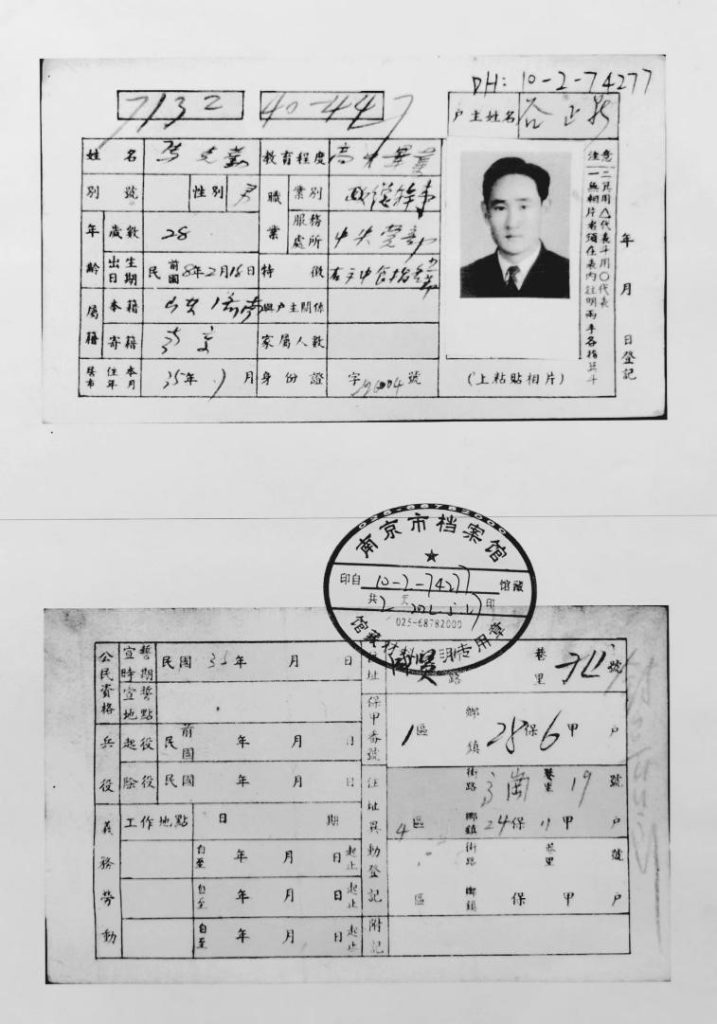 DH: 10-2-74277
7132 40-447 户主姓名 谷正
姓名 教育程度 高
別號 性別 男 職業 業別
年齡 歲數 28 服務處所 中央黨部
出生日期 民前國8年2月16日 特徵
屬籍 本籍 與戶主關係
寄籍 家屬人数
住本市年月 35年 月 身份證 字 號
(上粘貼相片)
注意
一無相片者須在表内註明兩手各指箕斗
二箕用△代表斗用○代表
年 月 日登記
南京市档案馆
印自 10-2-74277 馆藏
共 页 印
025-68782000
馆藏材料 明专用章
公民資格 宣誓時期 民國 35年 月 日
宣誓地點
兵役 起役 民前國 年 月 日
除役 民國 年 月 日
義務勞動 工作地點 日期
自至 年 月 日起止
自至 年 月 日起止
自至 年 月 日起止
址 路 巷里 號
保甲番號 1區 鄉鎮 28保6甲 户
住址異動登記 街路 巷里 19號
4區 鄉鎮 24保11甲 户
街路 巷里 號
區 鄉鎮 保 甲 户
附記